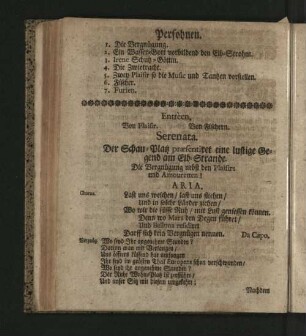 Persohnen.
1. Die Vergnügung.
2. Ein Wasser-Gott vorbildend den Elb-Strohm.
3. Irene Schutz-Göttin.
4. Die Zwietracht.
5. Zwey Plaisir so die Music und Tantzen vorstellen.
6. Fischer.
7. Furien.
Entréen,
Von Plaisir. Von Fischern.
Serenata.
Der Schau-Platz praesentiret eine lustige Gegend
am Elb-Strande.
Die Vergnügung nebst den Plaisirs
und Amouretten:
ARIA.
Last uns weichen, last uns fliehen,
Und in solche Länder ziehen,
Wo wir die süsse Ruh, mit Lust geniessen können.
Denn wo Mars den Degen führet,
Und
Darff sich kein Vergnügen nennen. Da Capo.
Vergnüg. Wo seyd Ihr angenehme Stunden?
Wo seyd Ihr angenehme Stunden?
Und unser Sieg mit diesem umgekehrt;
Nachdem